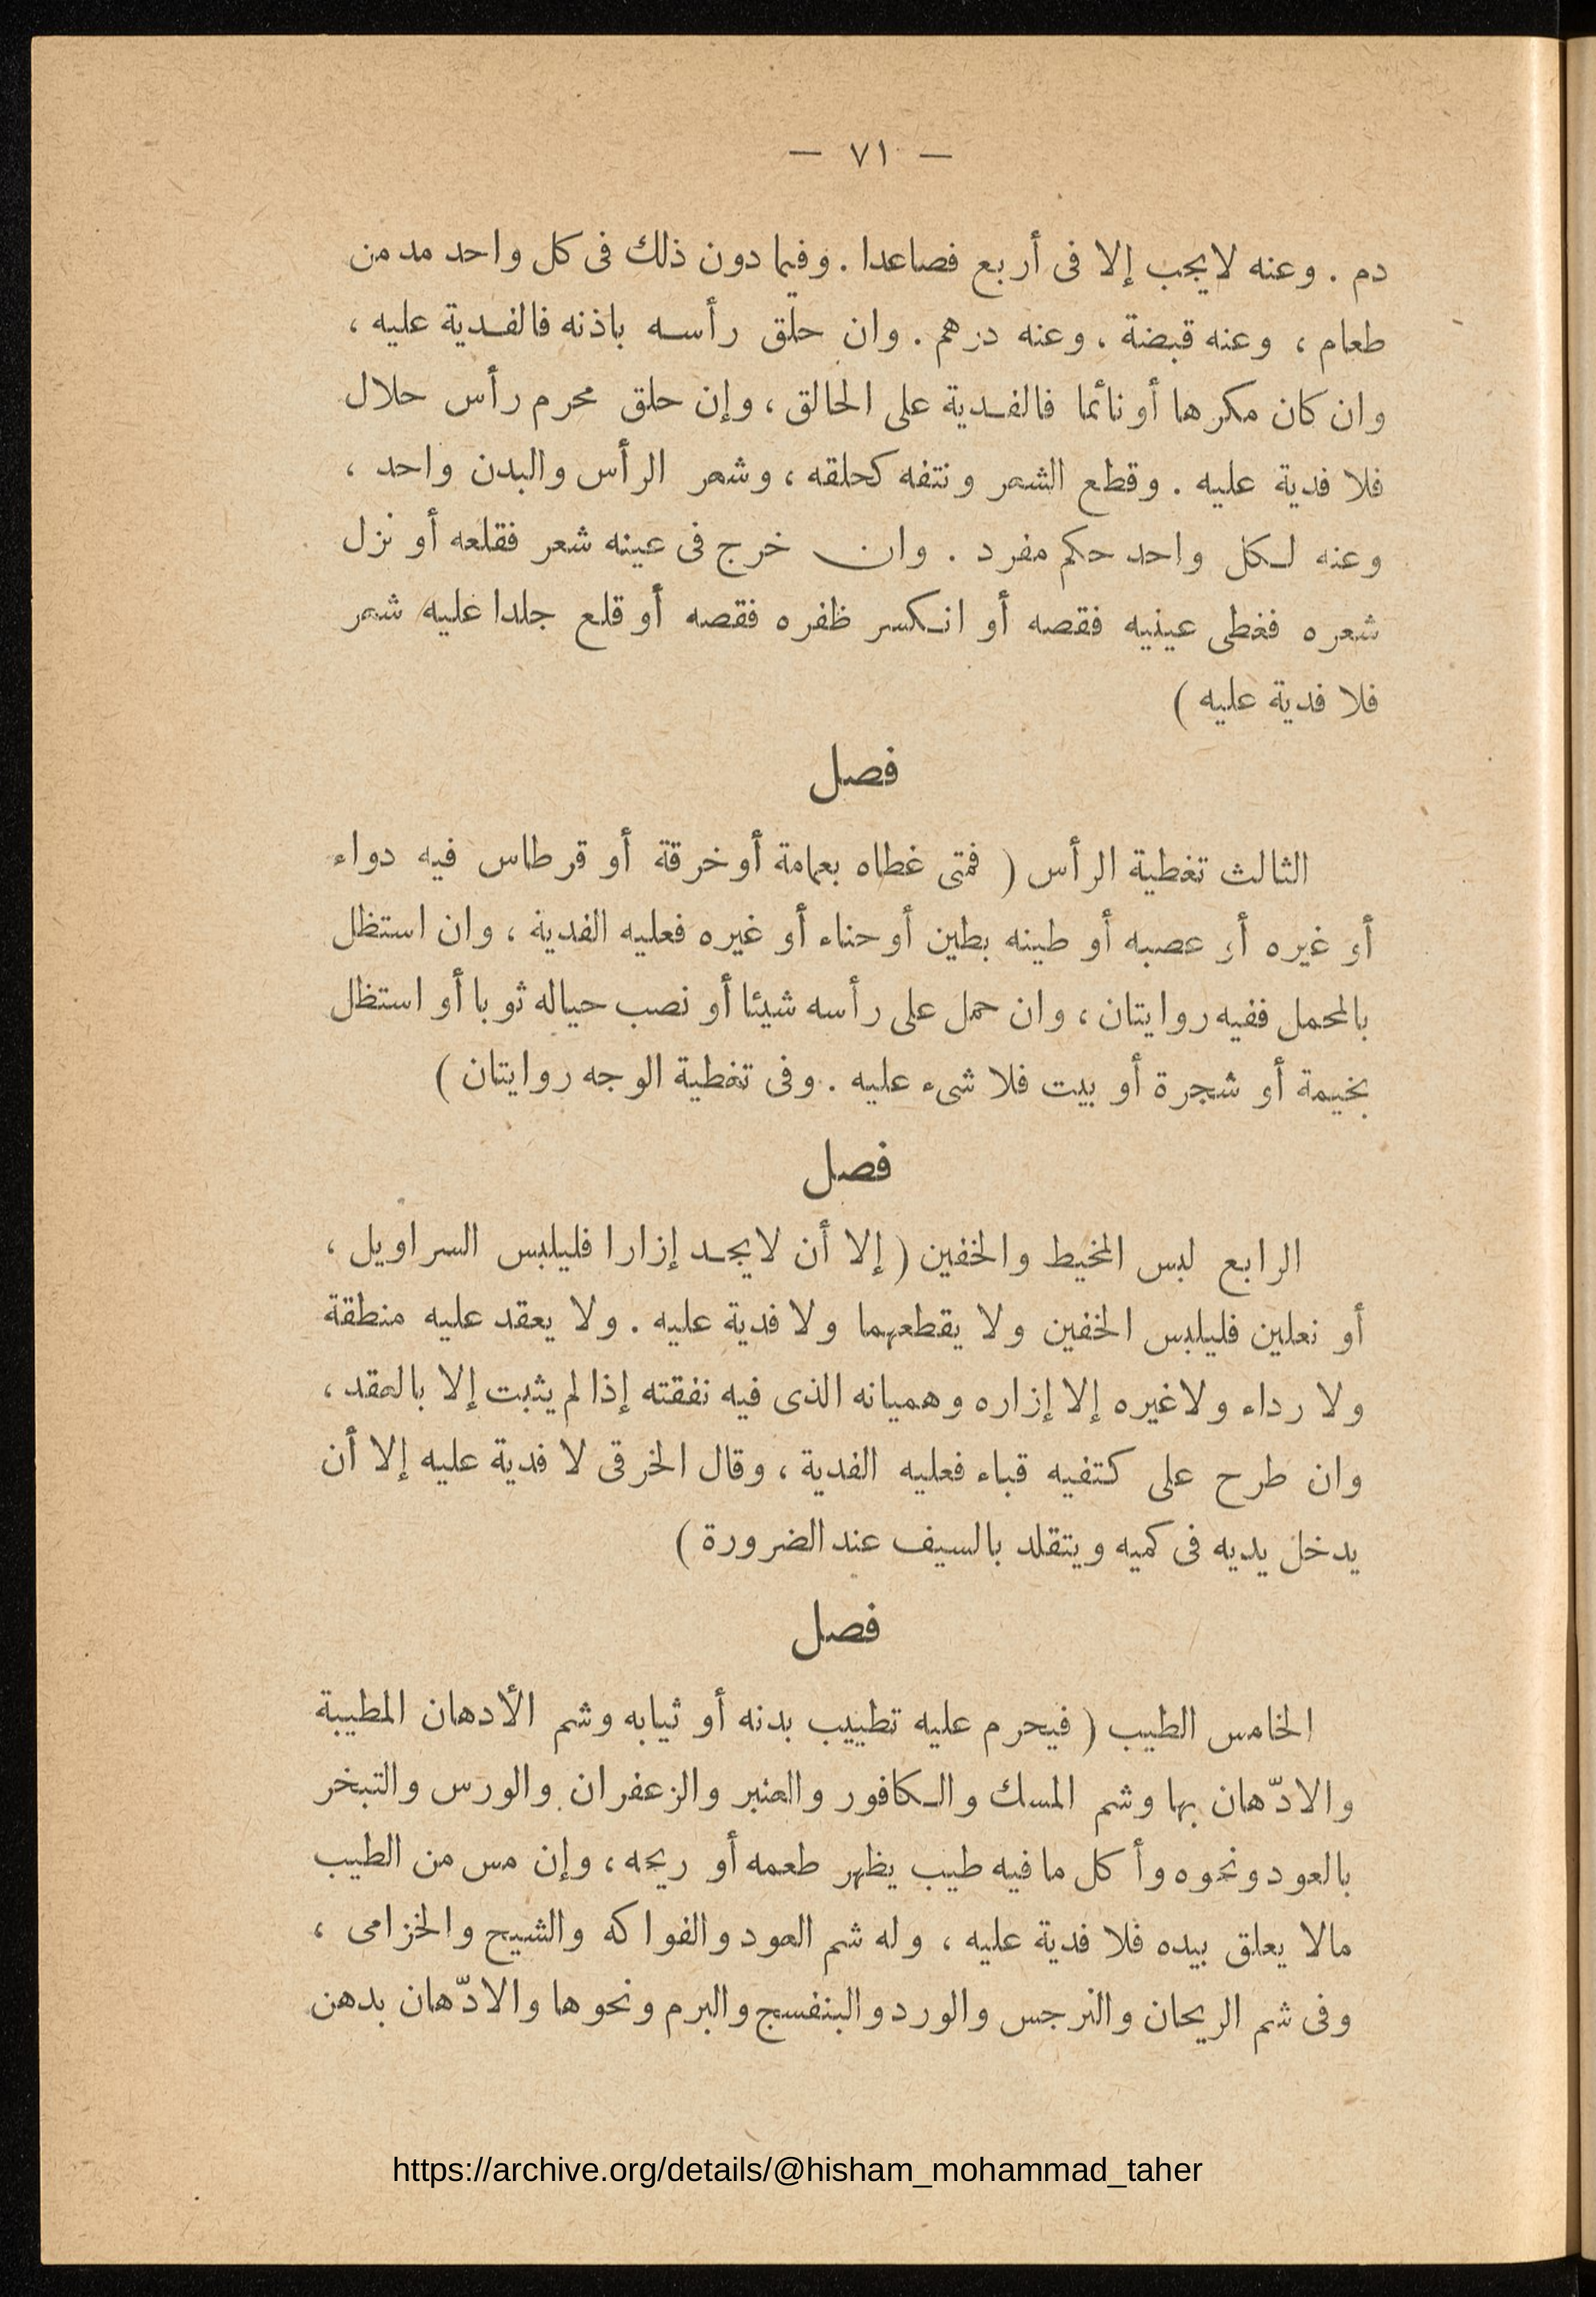 — ٧١ —
دم . وعنه لايجب إلا فى أربع فصاعدا . وفيما دون ذلك فى كل واحد مد من
طعام ، وعنه قبضة ، وعنه درهم . وان حلق رأسه باذنه فالفدية عليه ،
وان كان مكرها أو نائما فالفدية على الحالق ، وإن حلق محرم رأس حلال
فلا فدية عليه . وقطع الشعر ونتفه كحلقه ، وشعر الرأس والبدن واحد ،
وعنه لكل واحد حكم مفرد . وان خرج فى عينه شعر فقلعه أو نزل
شعره فغطى عينيه فقصه أو انكسر ظفره فقصه أو قلع جلدا عليه شعر
فلا فدية عليه )
فصل
الثالث تغطية الرأس ( فمتى غطاه بعمامة أو خرقة أو قرطاس فيه دواء
أو غيره أو عصبه أو طينه بطين أو حناء أو غيره فعليه الفدية ، وان استظل
بالمحمل ففيه روايتان ، وان حمل على رأسه شيئا أو نصب حياله ثوبا أو استظل
بخيمة أو شجرة أو بيت فلا شىء عليه . وفى تغطية الوجه روايتان )
فصل
الرابع لبس المخيط والخفين ( إلا أن لايجد إزارا فليلبس السراويل ،
أو نعلين فليلبس الخفين ولا يقطعهما ولا فدية عليه . ولا يعقد عليه منطقة
ولا رداء ولاغيره إلا إزاره وهميانه الذى فيه نفقته إذا لم يثبت إلا بالعقد ،
وان طرح على كتفيه قباء فعليه الفدية ، وقال الخرقى لا فدية عليه إلا أن
يدخل يديه فى كميه ويتقلد بالسيف عند الضرورة )
فصل
الخامس الطيب ( فيحرم عليه تطييب بدنه أو ثيابه وشم الأدهان المطيبة
والادّهان بها وشم المسك والكافور والعنبر والزعفران والورس والتبخر
بالعود ونحوه وأكل ما فيه طيب يظهر طعمه أو ريحه ، وإن مس من الطيب
مالا يعلق بيده فلا فدية عليه ، وله شم العود والفواكه والشيح والخزامى ،
وفى شم الريحان والنرجس والورد والبنفسج والبرم ونحوها والادّهان بدهن
https://archive.org/details/@hisham_mohammad_taher